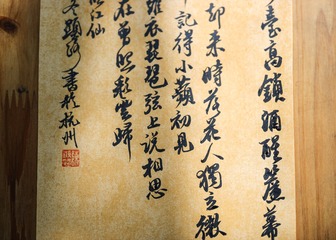 臺高鎖酒醒簾幕
却來時落花人獨立微
記得小蘋初見
羅衣琵琶弦上說相思
在曾照彩雲歸
江仙
冬書於杭州